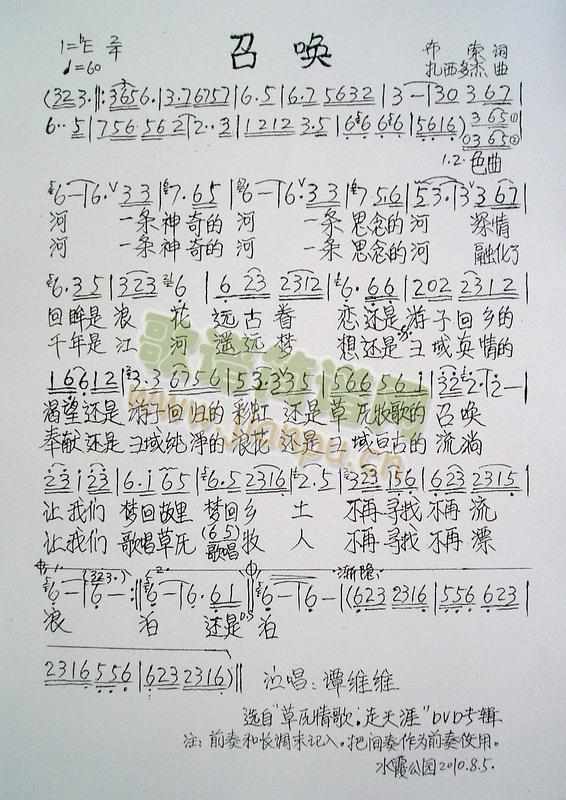 召唤
1=♭E 2/4
♩=60
布 索 词
扎西多杰 曲
(323.‖: 3656.|3.76757|6.5|6.75632|3-|30367|
6..5|756.562|2..3|12123.5|6666|5616)|365①
0365②
1.2.色曲
6-|6.33|7.65|6-|6.33|756|53.|3367|
河 一条神奇的 河 一条思念的河 深情
河 一条神奇的 河 一条思念的河 融化了
6.35|3236|6232312|6.66|2022312|
回眸是浪 花 远古眷 恋还是游子回乡的
千年是江 河 遥远梦 想还是 域真情的
16612|3.36756|53.335|566561|322.|2-|
渴望还是游子回归的彩虹 还是草原牧歌的 召唤
奉献还是 域纯净的浪花 还是 域亘古的 流淌
23123|6.165|6.52316|2.5|32356|6232315|
让我们 梦回故里 梦回乡 土 不再寻找不再 流
(65)
让我们 歌唱草原 歌唱牧 人 不再寻找不再 漂
(323.) 2. 渐隐
6-|6-:‖6-|6.61‖6-|6-|(6232316|556623|
浪 泊 还是 泊
2316556|6232316)‖
演唱:谭维维
选自"草原情歌.走天涯"DVD专辑
注:前奏和长调未记入。把间奏作为前奏使用。
水霞公园2010.8.5.
歌谱简谱网
www.jianpu.cn